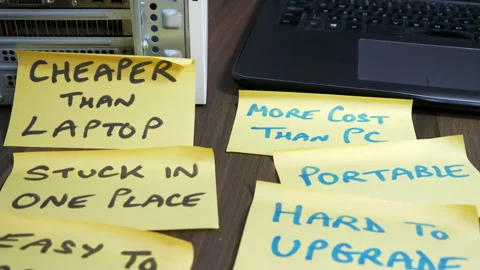 CHEAPER
THAN
LAPTOP
STUCK IN
ONE PLACE
EASY TO
MORE COST
THAN PC
PORTABLE
HARD TO
UPGRADE